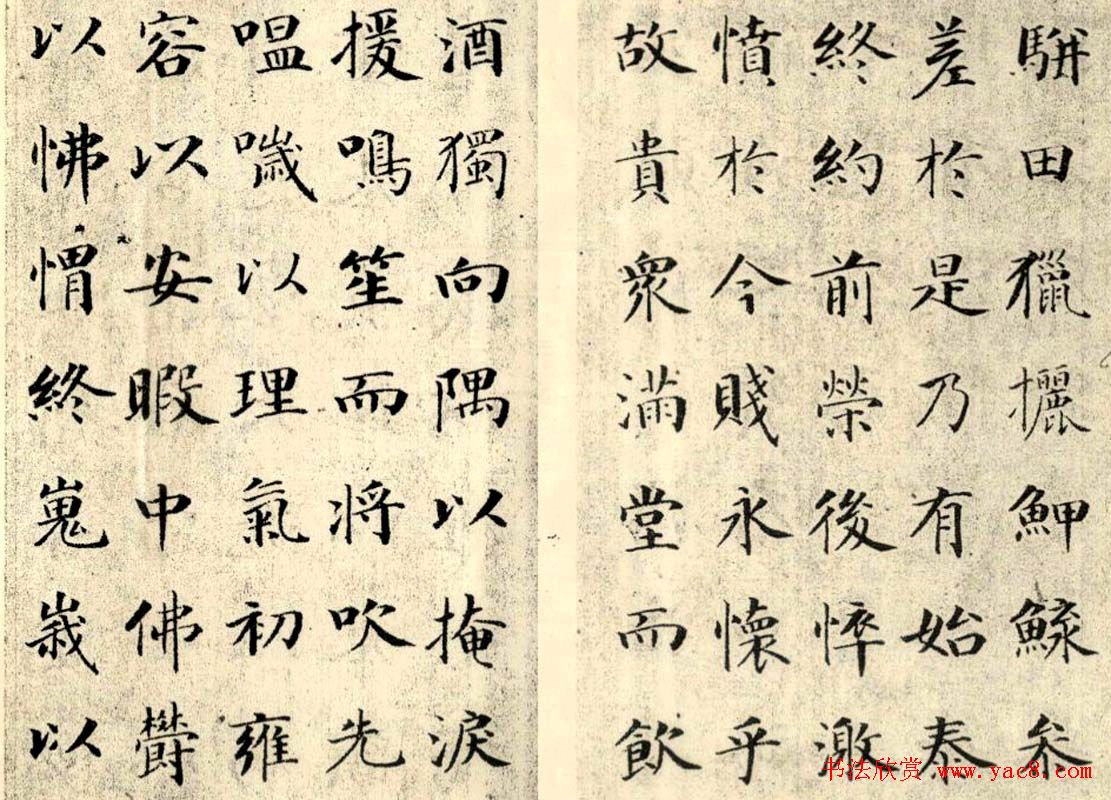 駢田獵攦魻參
差於是乃有始泰
終約前榮後悴激
憤於今賤永懷乎
故貴衆滿堂而飲
酒獨向隅以掩淚
援鳴笙而将吹先
嗢噦以理氣初雍
容以安暇中佛欝
以怫㥜終嵬峩以
书法欣赏 www.yac8.com